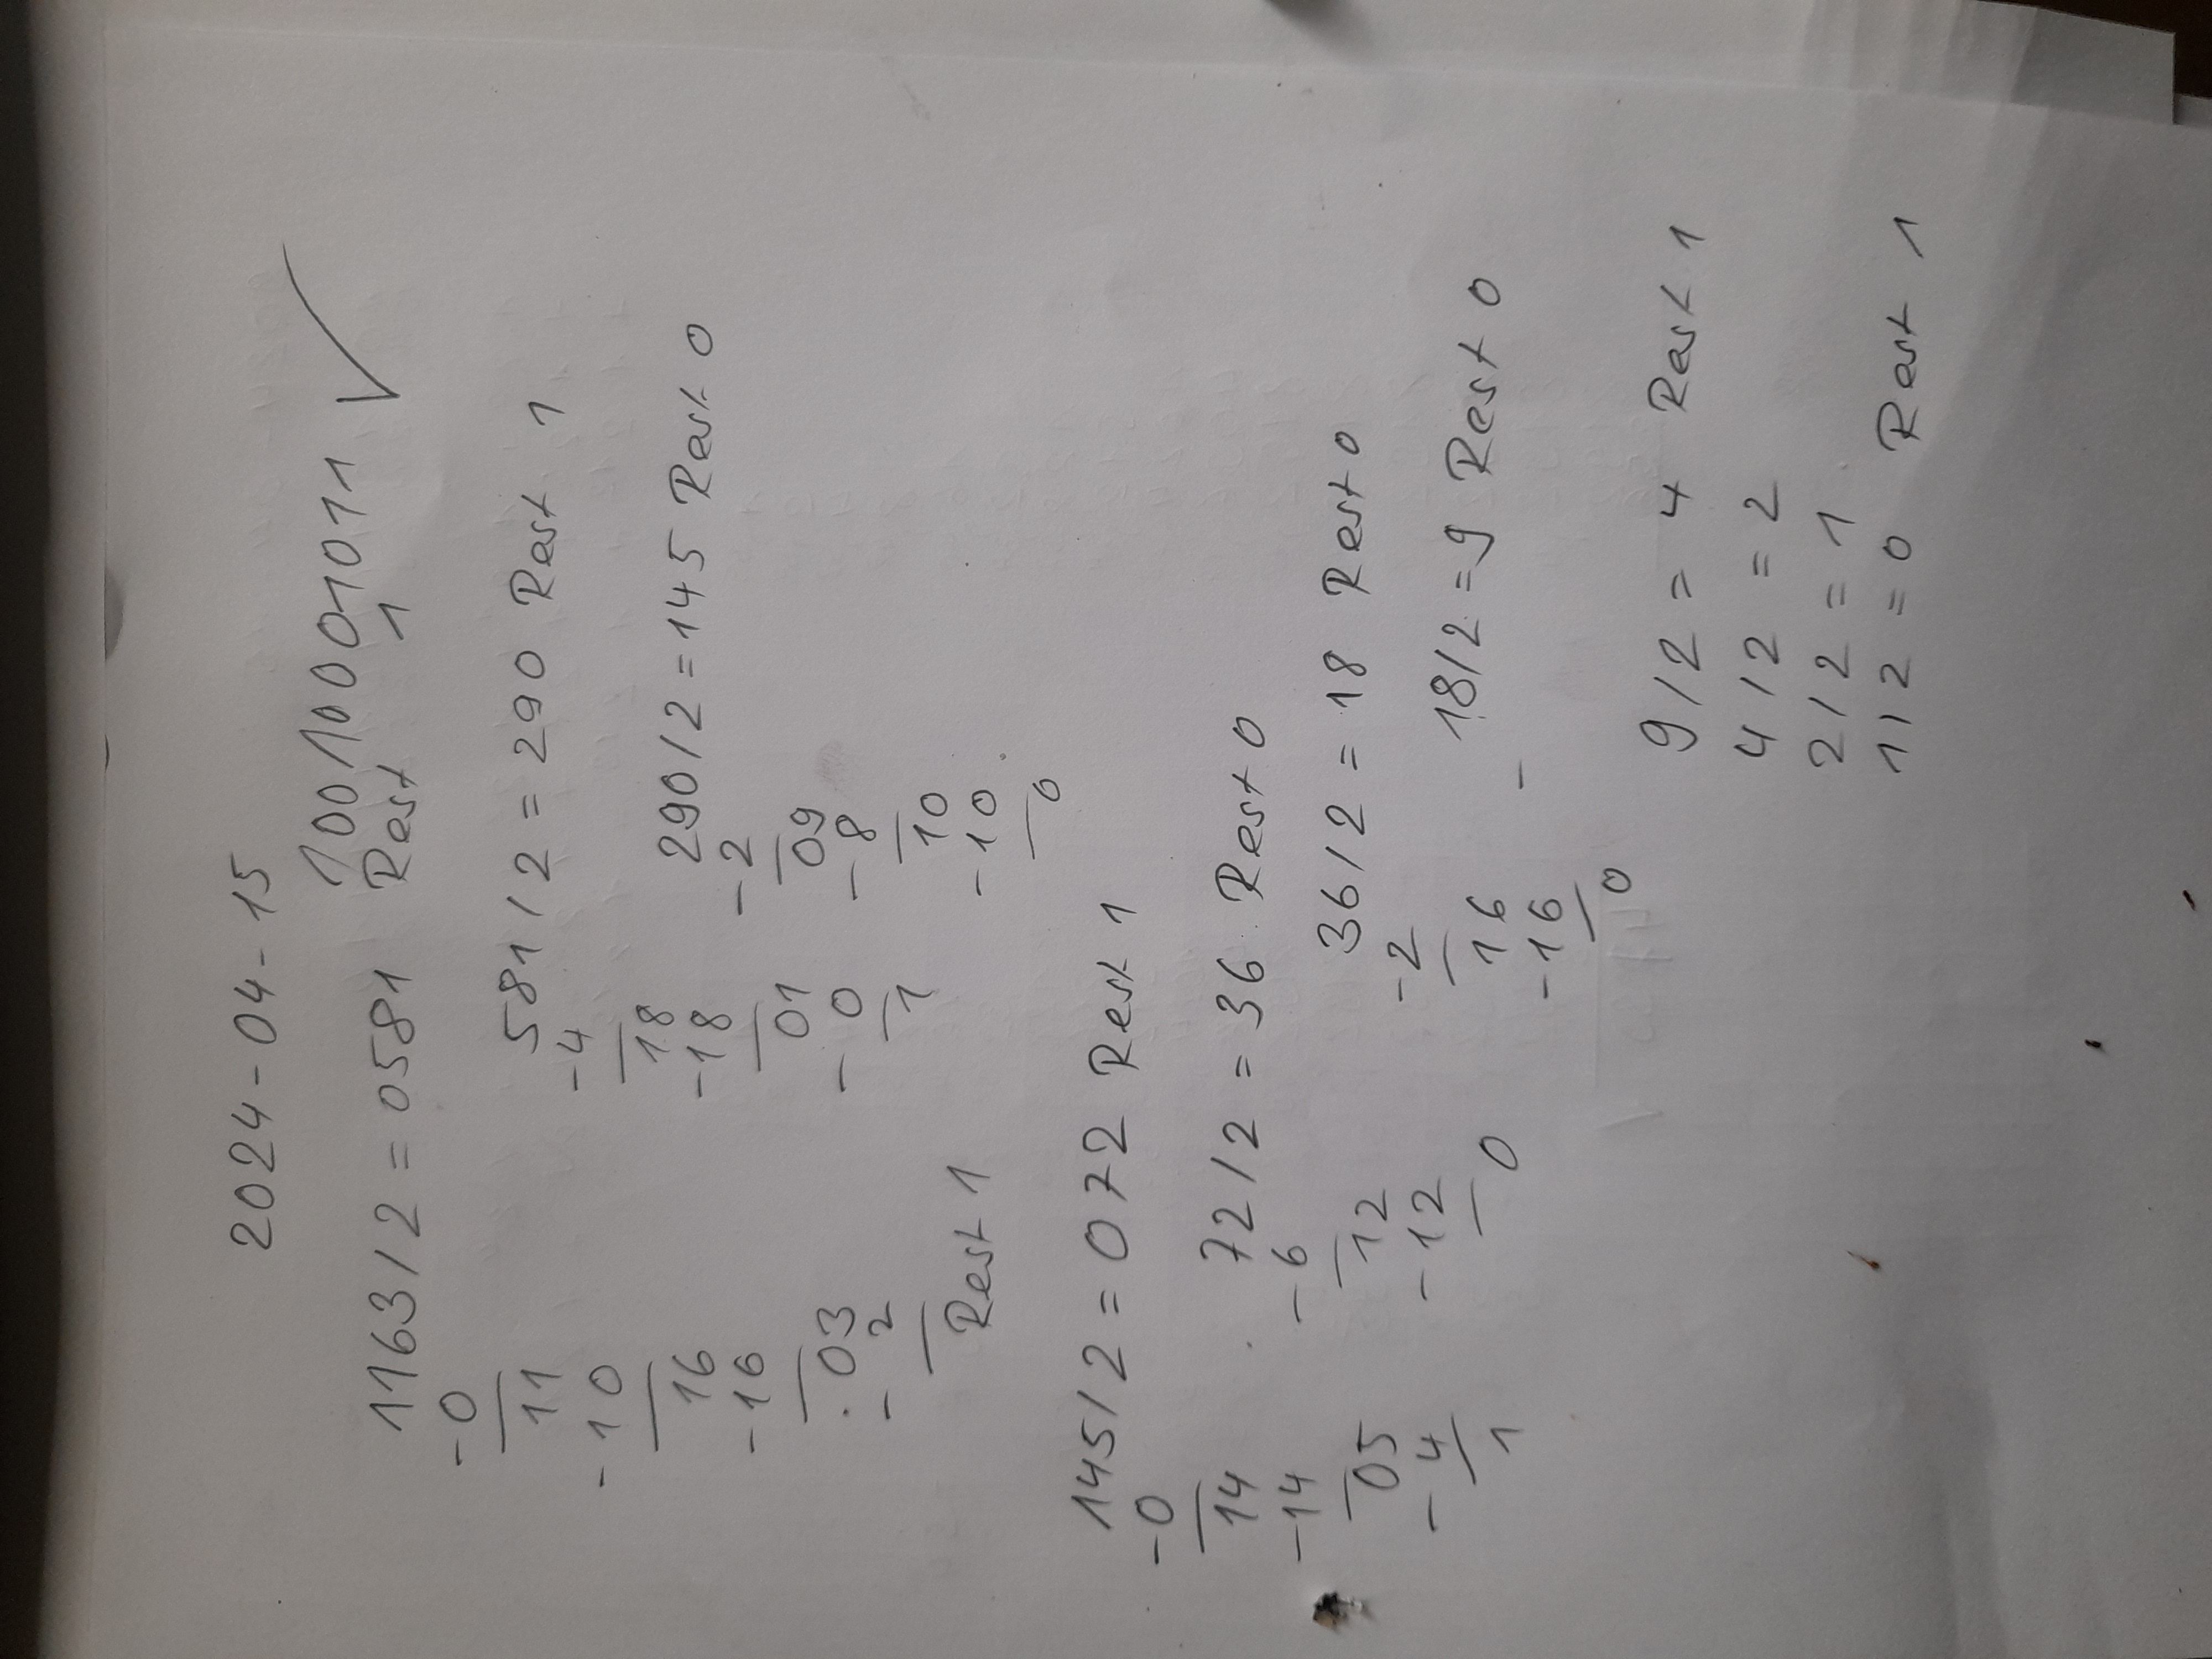 2024-04-15
10010001011 ✓
1163/2 = 0581 Rest 1
-0
11
-10
16
-16
03
- 2
Rest 1
581/2 = 290 Rest 1
-4
18
-18
01
- 0
1
290/2 = 145 Rest 0
-2
09
- 8
10
-10
0
145/2 = 072 Rest 1
-0
14
-14
05
- 4
1
72/2 = 36 Rest 0
-6
12
-12
0
36/2 = 18 Rest 0
-2
16
-16
0
18/2 = 9 Rest 0
9/2 = 4 Rest 1
4/2 = 2
2/2 = 1
1/2 = 0 Rest 1